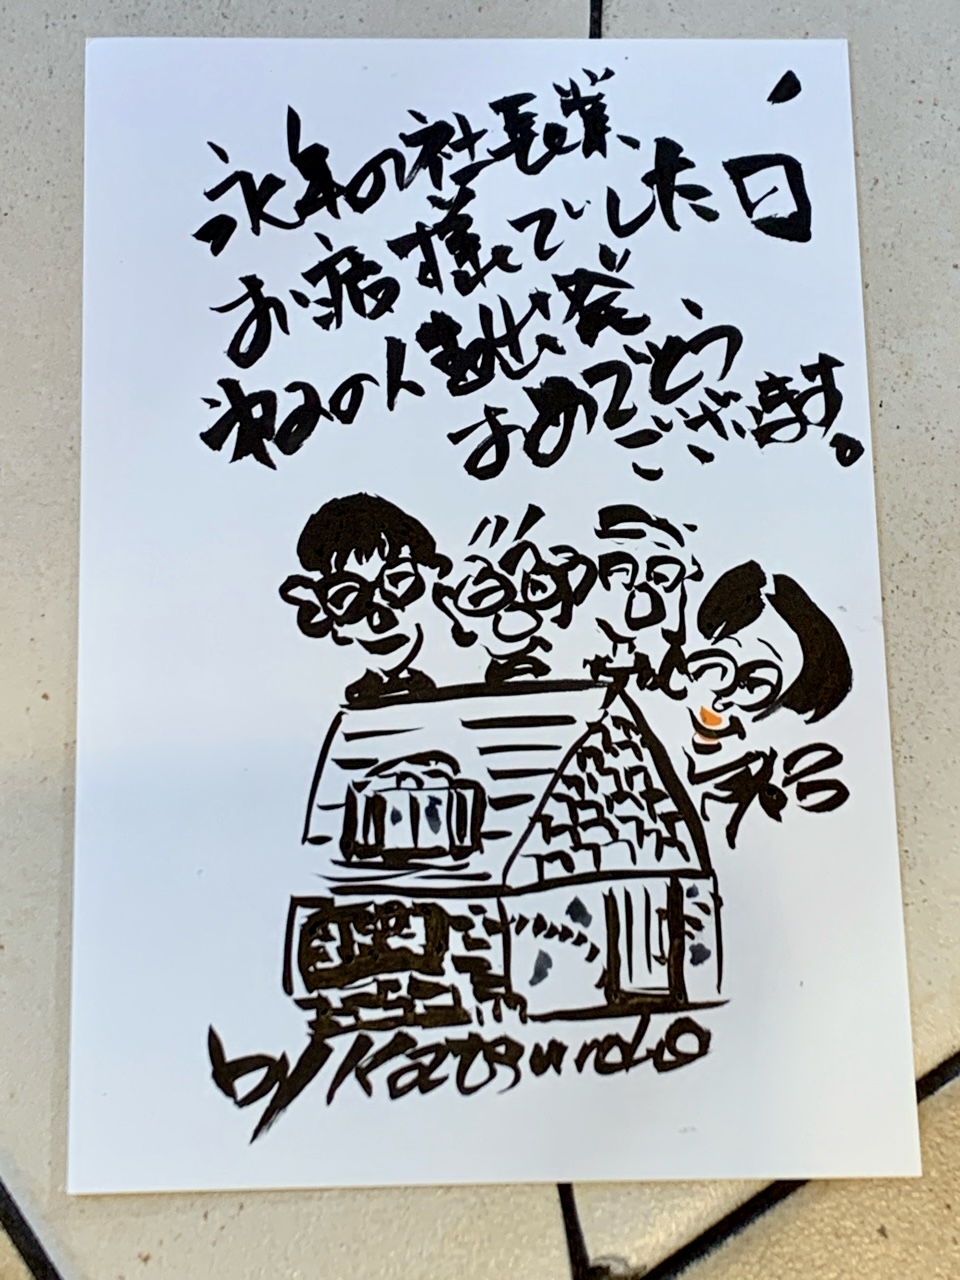 永年の社長業、
お疲れ様でした
の人生出発
おめでとう
ございます。
by Katsundo